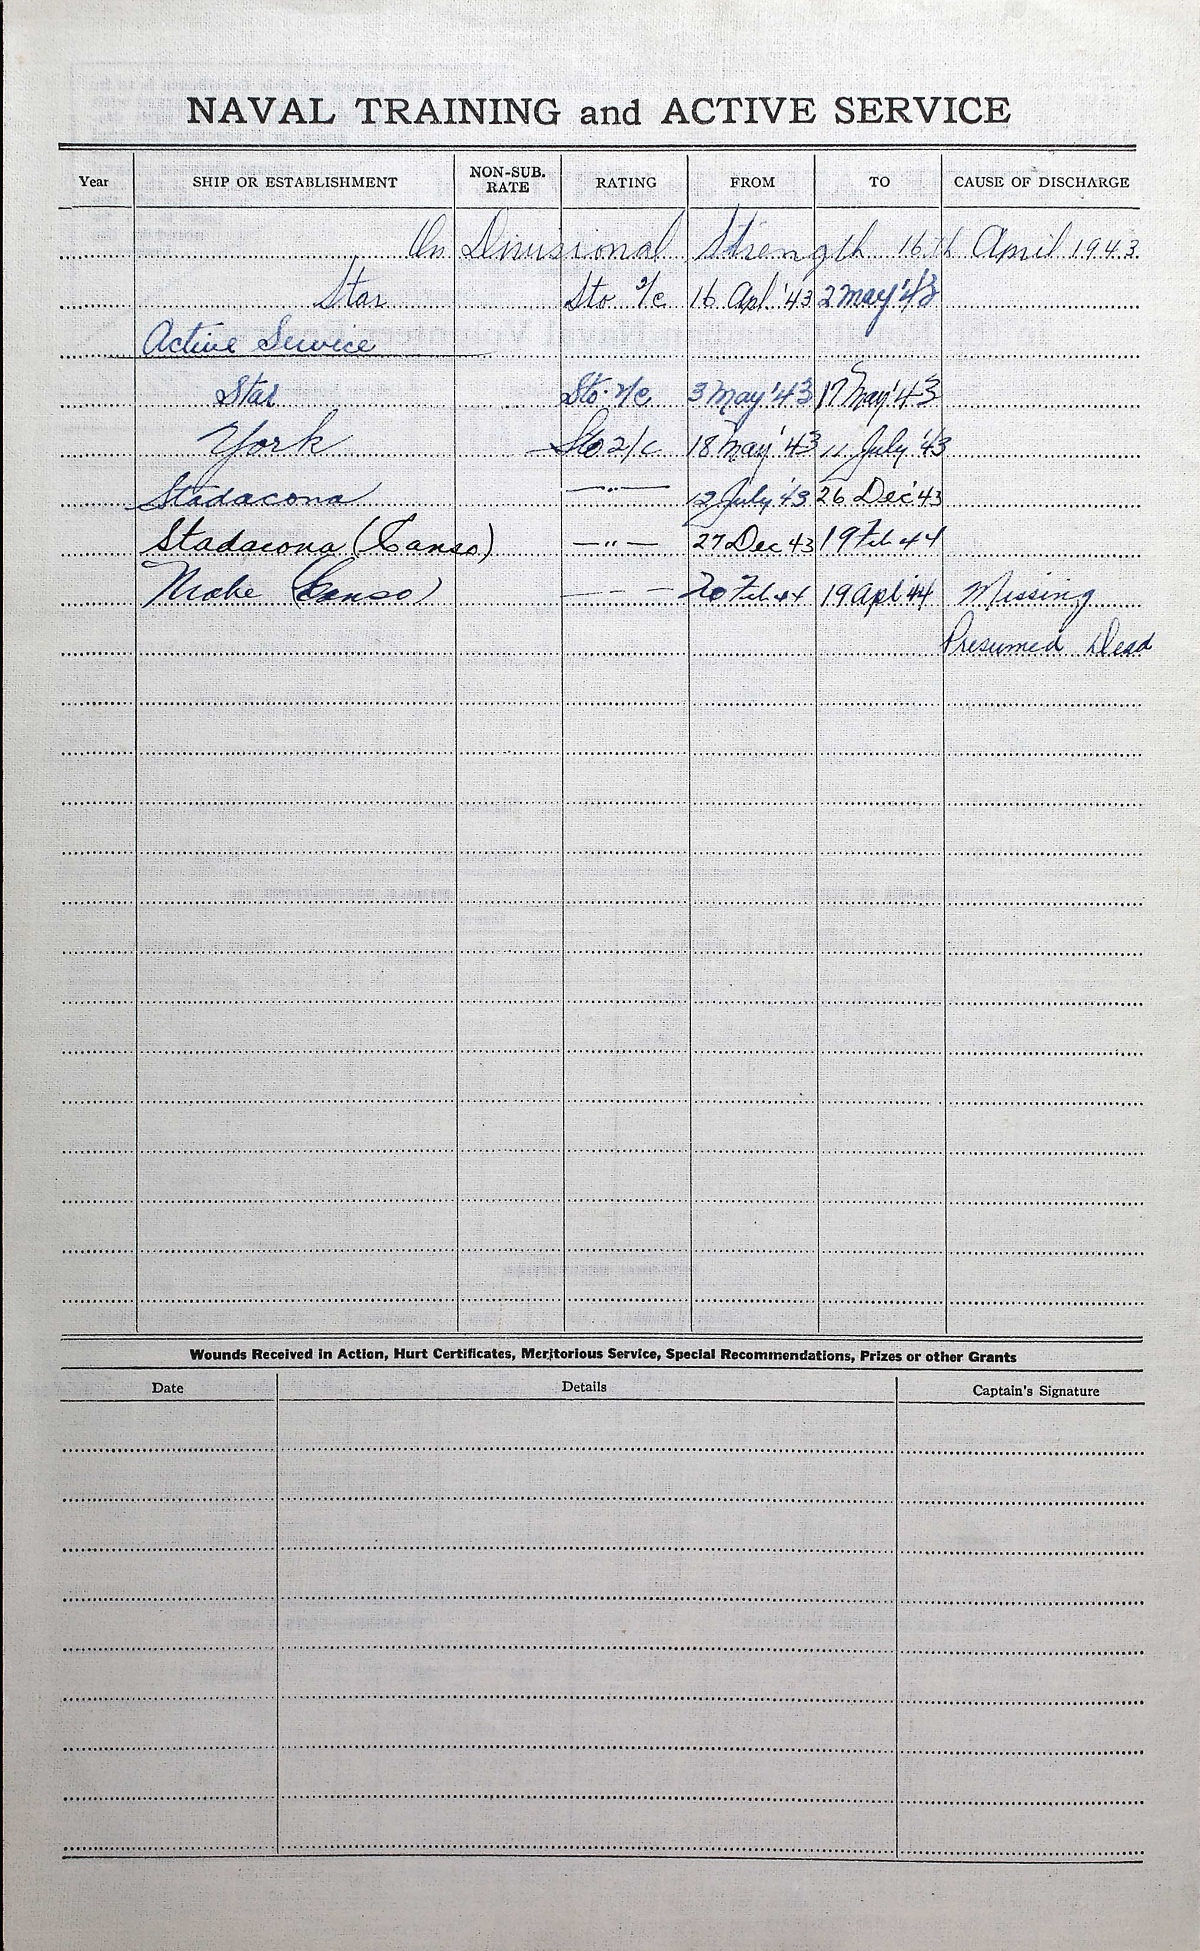 NAVAL TRAINING and ACTIVE SERVICE
Year SHIP OR ESTABLISHMENT NON-SUB. RATE RATING FROM TO CAUSE OF DISCHARGE
On Divisional Strength 16th April 1943
Star Sto 2/c 16 Apl '43 2 May '43
Active Service
Star Sto. 2/c 3 May '43 17 May '43
York Sto 2/c 18 May '43 11 July '43
Stadacona —"— 12 July '43 26 Dec '43
Stadacona (Canso) —"— 27 Dec 43 19 Feb 44
(Canso) — — — 20 Feb 44 19 Apl '44 Missing
Presumed Dead
Wounds Received in Action, Hurt Certificates, Meritorious Service, Special Recommendations, Prizes or other Grants
Date Details Captain's Signature